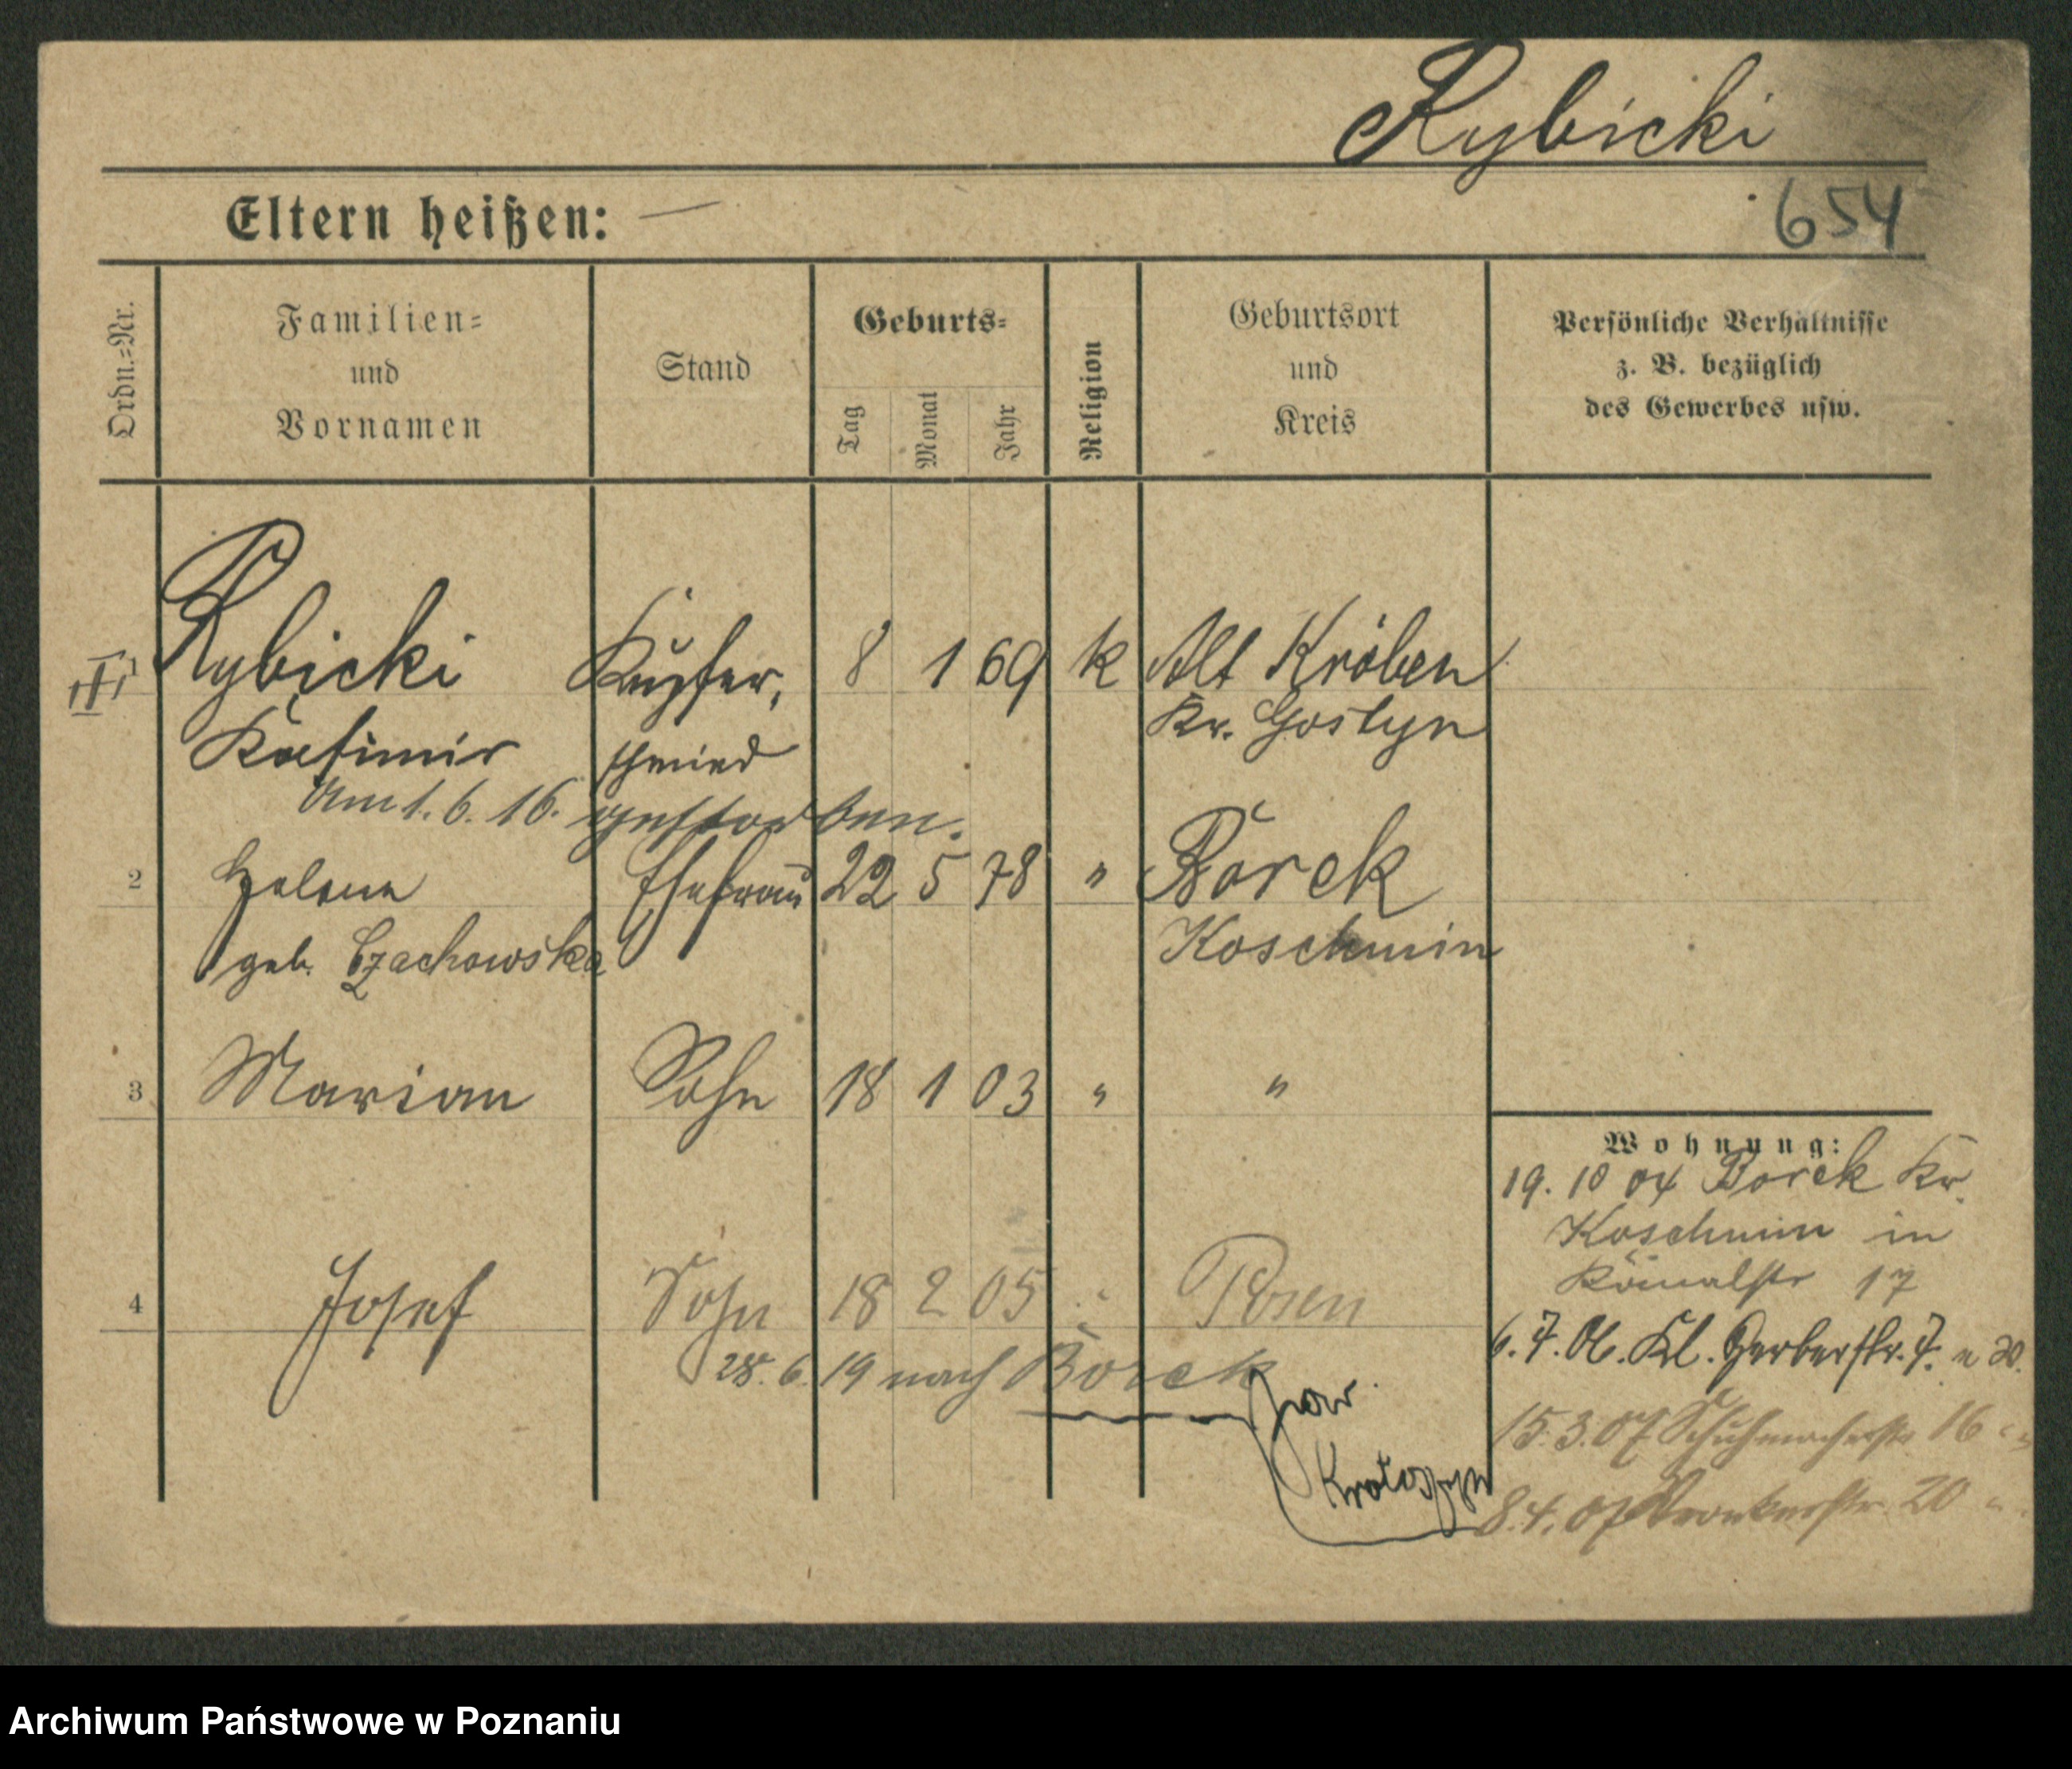 Rybicki
Eltern heißen: —
654
Ordn.-Nr.
Familien-
und
Vornamen
Stand
Geburts-
Tag
Monat
Jahr
Religion
Geburtsort
und
Kreis
Persönliche Verhältnisse
z. B. bezüglich
des Gewerbes usw.
Rybicki Kupfer, 8 1 69 k Alt Kröben
Kr. Gostyn
Kasimir schmied
Am 1. 6. 16. gestorben.
2 Helene Ehefrau 22 5 78 " Borek
geb. Czachowska Koschmin
3 Marian Sohn 18 1 03 " "
Wohnung:
19. 10 04 Borek Kr.
Koschmin in
17
4 Josef Sohn 18 2 05 " Posen
6. 7. 06. Kl. Gerberstr. 7.
28. 6. 19 nach Borek
pow.
15. 3. 07 Schuhmacherstr 16 "
Krotoszyn
8. 4. 07 Wronkerstr. 20 "
Archiwum Państwowe w Poznaniu